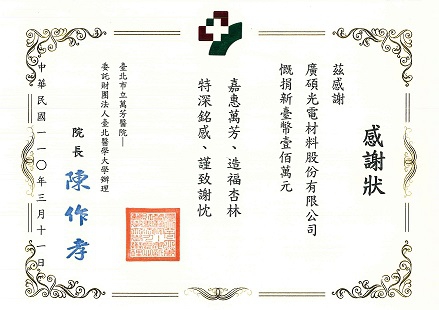 感謝狀
茲感謝
廣碩光電材料股份有限公司
慨捐新臺幣壹佰萬元
嘉惠萬芳、造福杏林
特深銘感、謹致謝忱
臺北市立萬芳醫院─
委託財團法人臺北醫學大學辦理
院長 陳作孝
中華民國一一〇年三月十一日